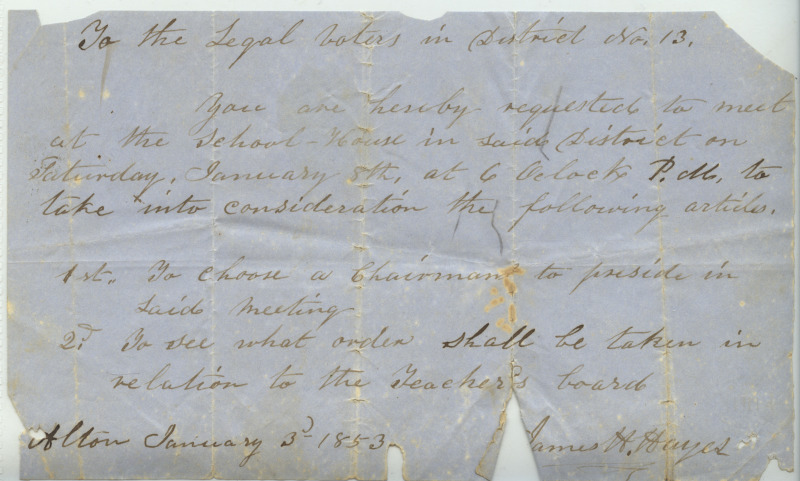 To the Legal Voters in District No. 13.
You are hereby requested to meet
at the School-House in said District on
Saturday, January 8th, at 6 Oclock P.M, to
take into consideration the following articles.
1st. To choose a Chairman to preside in
said meeting
2d. To see what order shall be taken in
relation to the Teacher's board
Alton January 3d 1853
James H. Hayes